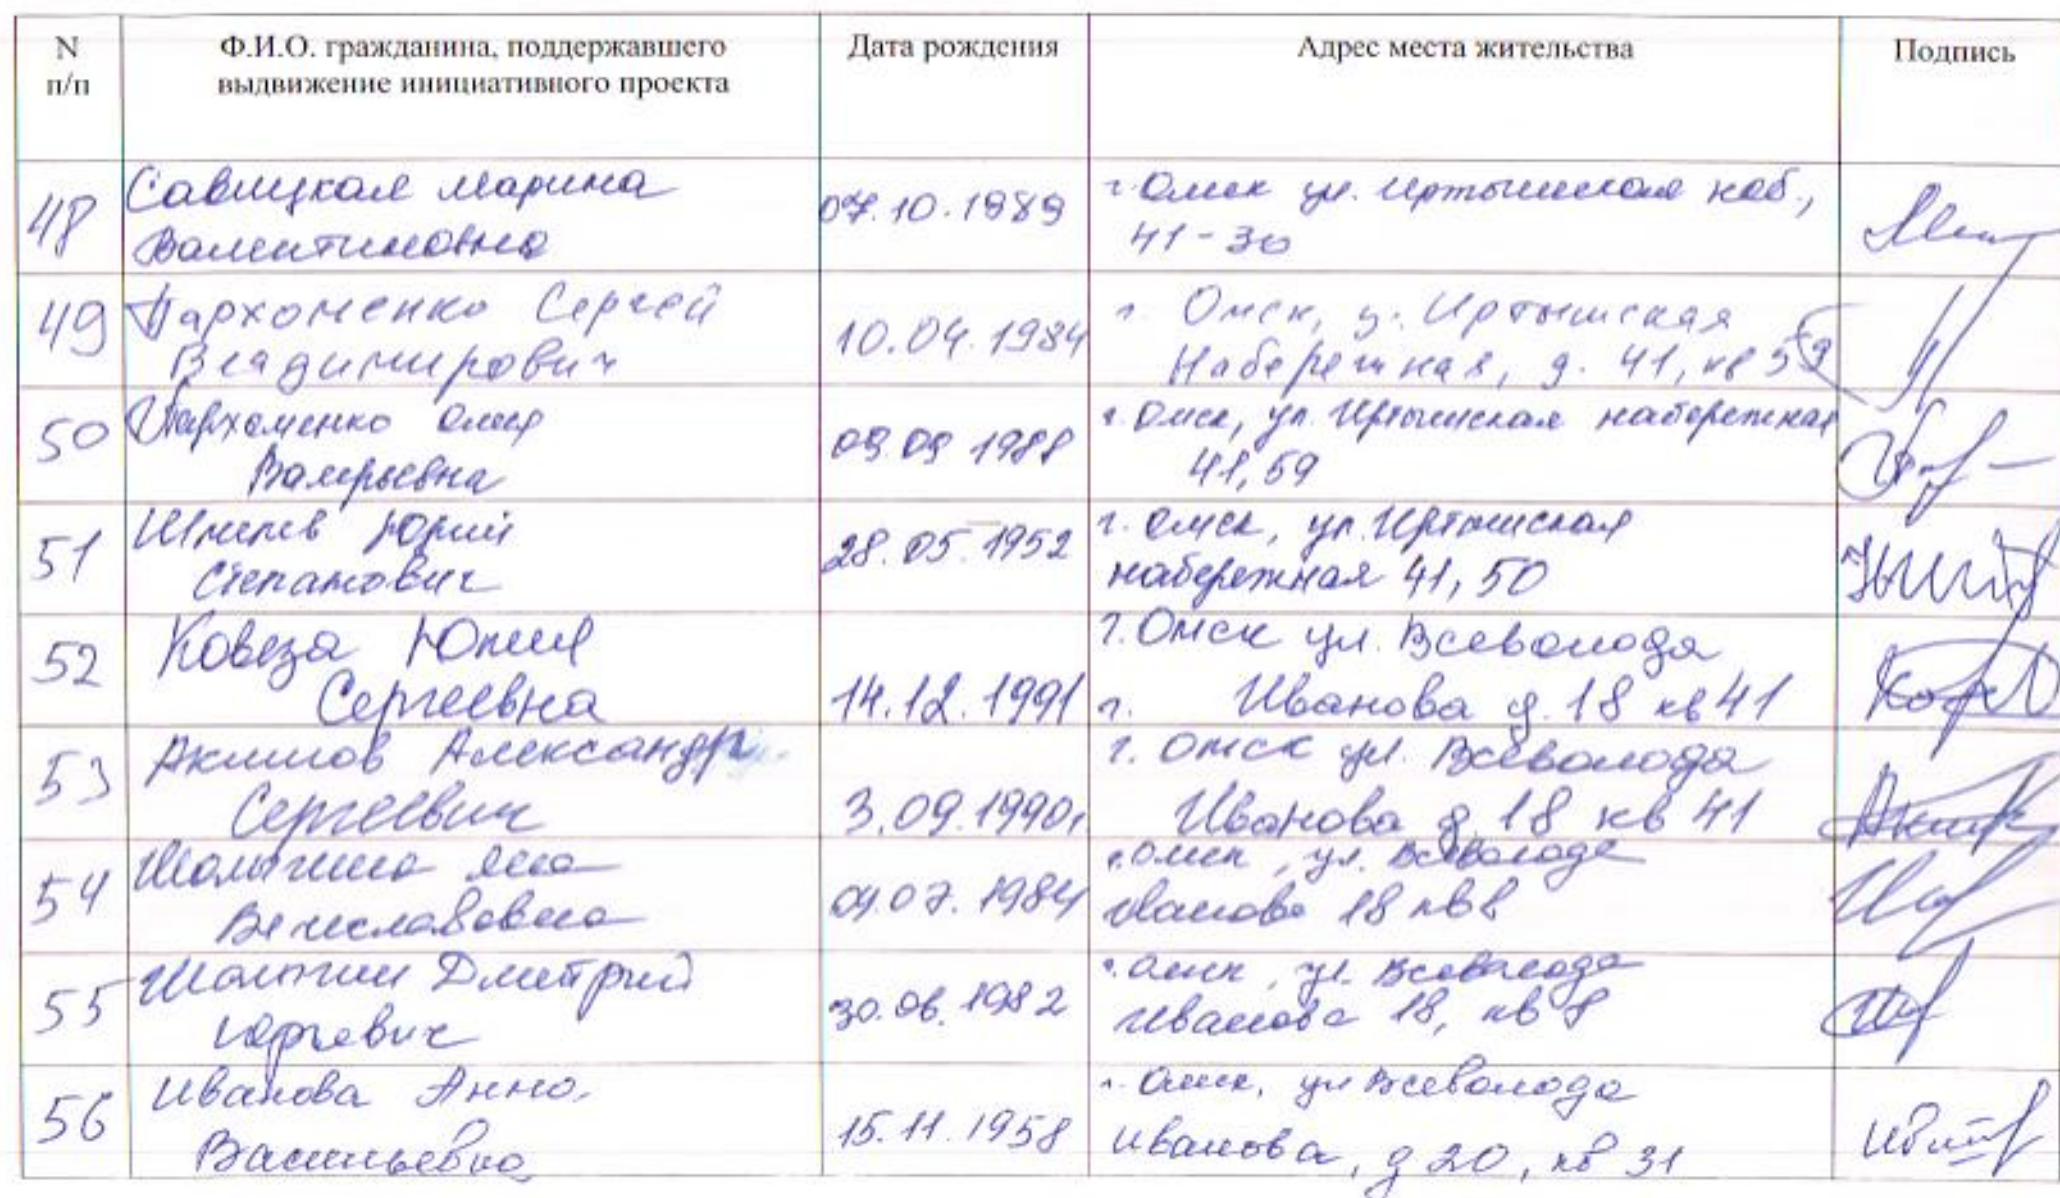 N
п/п
Ф.И.О. гражданина, поддержавшего
выдвижение инициативного проекта
Дата рождения
Адрес места жительства
Подпись
48
Савицкая Марина
Валентиновна
07.10.1989
г. Омск ул. Иртышская наб.,
41-30
49
Пархоменко Сергей
Владимирович
10.04.1984
г. Омск, у. Иртышская
Набережная, д. 41, кв 59
50
Пархоменко
Валерьевна
09.09 1988
г. Омск, ул. Иртышская набережная
41, 59
51
Юрий
Степанович
28.05.1952
г. Омск, ул. Иртышская
набережная 41, 50
52
Ковеза Юлия
Сергеевна
14.12.1991
г. Омск ул. Всеволода
г. Иванова д. 18 кв 41
53
Акимов Александр
Сергеевич
3.09.1990г
г. Омск ул. Всеволода
Иванова д. 18 кв 41
54
Шалыгина
Вячеславовна
07.1984
г. Омск, ул. Всеволода
Иванова 18 кв 8
55
Шалыгин Дмитрий
Юрьевич
30.06.1982
г. Омск, ул. Всеволода
Иванова 18, кв 8
56
Иванова Анна
Васильевна
15.11.1958
г. Омск, ул Всеволода
Иванова, д 20, кв 31